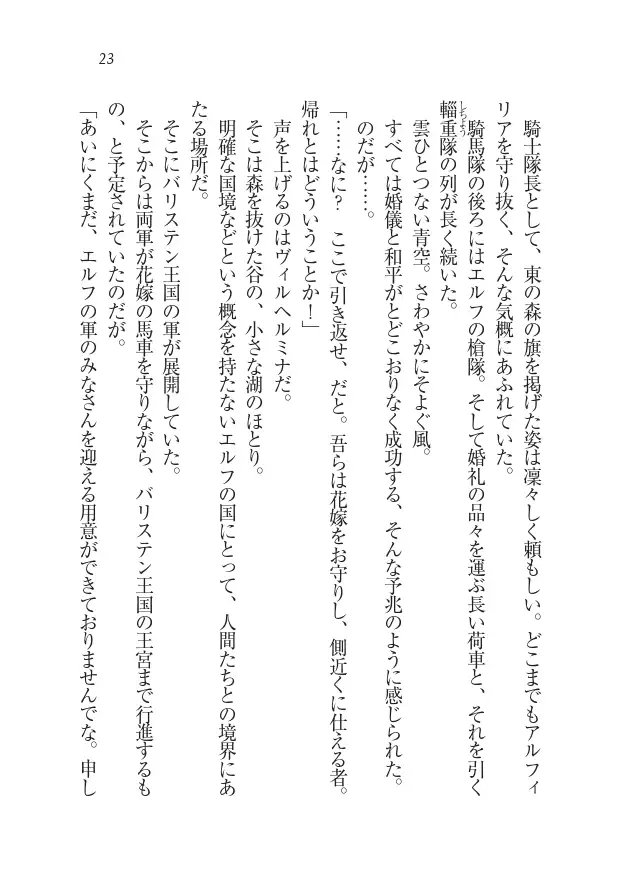 23
騎士隊長として、東の森の旗を掲げた姿は凜々しく頼もしい。どこまでもアルフィ
リアを守り抜く、そんな気概にあふれていた。
騎馬隊の後ろにはエルフの槍隊。そして婚礼の品々を運ぶ長い荷車と、それを引く
輜重隊の列が長く続いた。
しちよう
雲ひとつない青空。さわやかにそよぐ風。
すべては婚儀と和平がとどこおりなく成功する、そんな予兆のように感じられた。
のだが……。
「……なに？　ここで引き返せ、だと。吾らは花嫁をお守りし、側近くに仕える者。
帰れとはどういうことか！」
声を上げるのはヴィルヘルミナだ。
そこは森を抜けた谷の、小さな湖のほとり。
明確な国境などという概念を持たないエルフの国にとって、人間たちとの境界にあ
たる場所だ。
そこにバリステン王国の軍が展開していた。
そこからは両軍が花嫁の馬車を守りながら、バリステン王国の王宮まで行進するも
の、と予定されていたのだが。
「あいにくまだ、エルフの軍のみなさんを迎える用意ができておりませんでな。申し